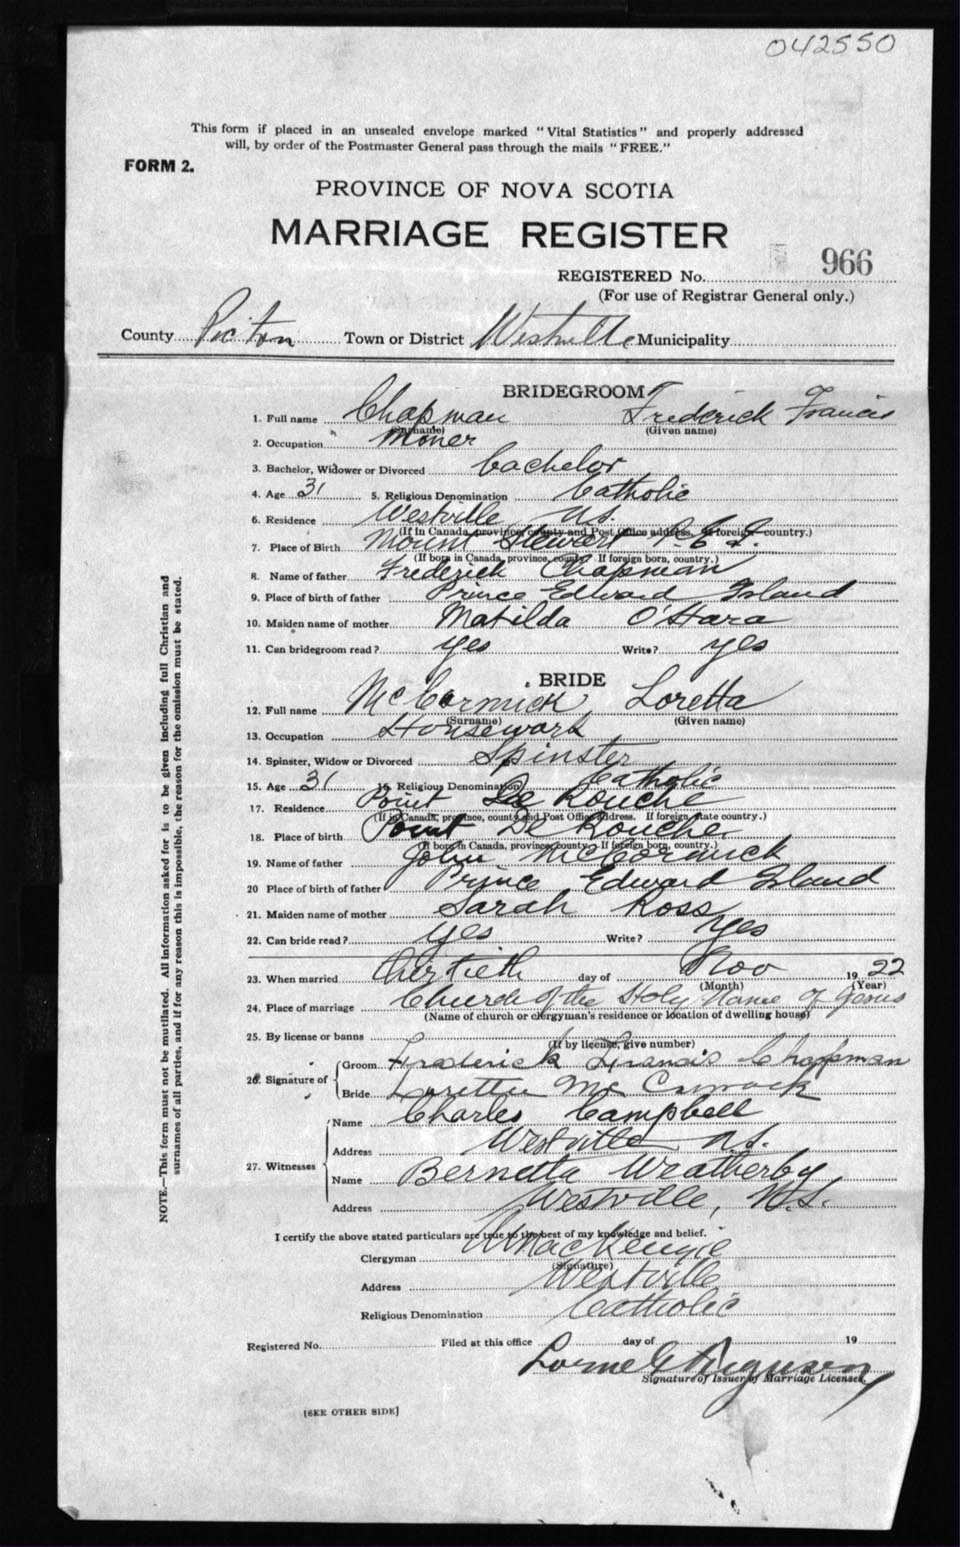 042550
This form if placed in an unsealed envelope marked "Vital Statistics" and properly addressed
will, by order of the Postmaster General pass through the mails "FREE."
FORM 2.
PROVINCE OF NOVA SCOTIA
MARRIAGE REGISTER
REGISTERED No. 966
(For use of Registrar General only.)
County Pictou Town or District Westville Municipality
BRIDEGROOM
1. Full name Chapman Frederick Francis
(Surname) (Given name)
2. Occupation Miner
3. Bachelor, Widower or Divorced bachelor
4. Age 31 5. Religious Denomination Catholic
6. Residence Westville N.S.
(If in Canada, province, county and Post Office address. If foreign country.)
7. Place of Birth Mount Stewart P.E.I.
(If born in Canada, province, county. If foreign born, country.)
8. Name of father Frederick Chapman
9. Place of birth of father Prince Edward Island
10. Maiden name of mother Matilda O'Hara
11. Can bridegroom read? yes Write? yes
BRIDE
12. Full name McCormick Loretta
(Surname) (Given name)
13. Occupation Housework
14. Spinster, Widow or Divorced Spinster
15. Age 31 16. Religious Denomination Catholic
17. Residence Point De Rouche
(If in Canada, province, county and Post Office address. If foreign state country.)
18. Place of birth Point De Rouche
(If born in Canada, province, county. If foreign born, country.)
19. Name of father John McCormick
20 Place of birth of father Prince Edward Island
21. Maiden name of mother Sarah Ross
22. Can bride read? yes Write? yes
23. When married thirtieth day of Nov 19 22
(Month) (Year)
24. Place of marriage Church of the Holy Name of Jesus
(Name of church or clergyman's residence or location of dwelling house)
25. By license or banns
(If by license, give number)
26. Signature of
Groom Frederick Francis Chapman
Bride Loretta Mc Cormack
27. Witnesses
Name Charles Campbell
Address Westville N.S.
Name Bernetta Weatherby
Address Westville, N.S.
I certify the above stated particulars are true to the best of my knowledge and belief.
Clergyman MacKenzie
(Signature)
Address Westville
Religious Denomination Catholic
Registered No. Filed at this office day of 19
Lorne G Ferguson
Signature of Issuer of Marriage Licenses.
[SEE OTHER SIDE]
NOTE.—This form must not be mutilated. All information asked for is to be given including full Christian and
surnames of all parties, and if for any reason this is impossible, the reason for the omission must be stated.